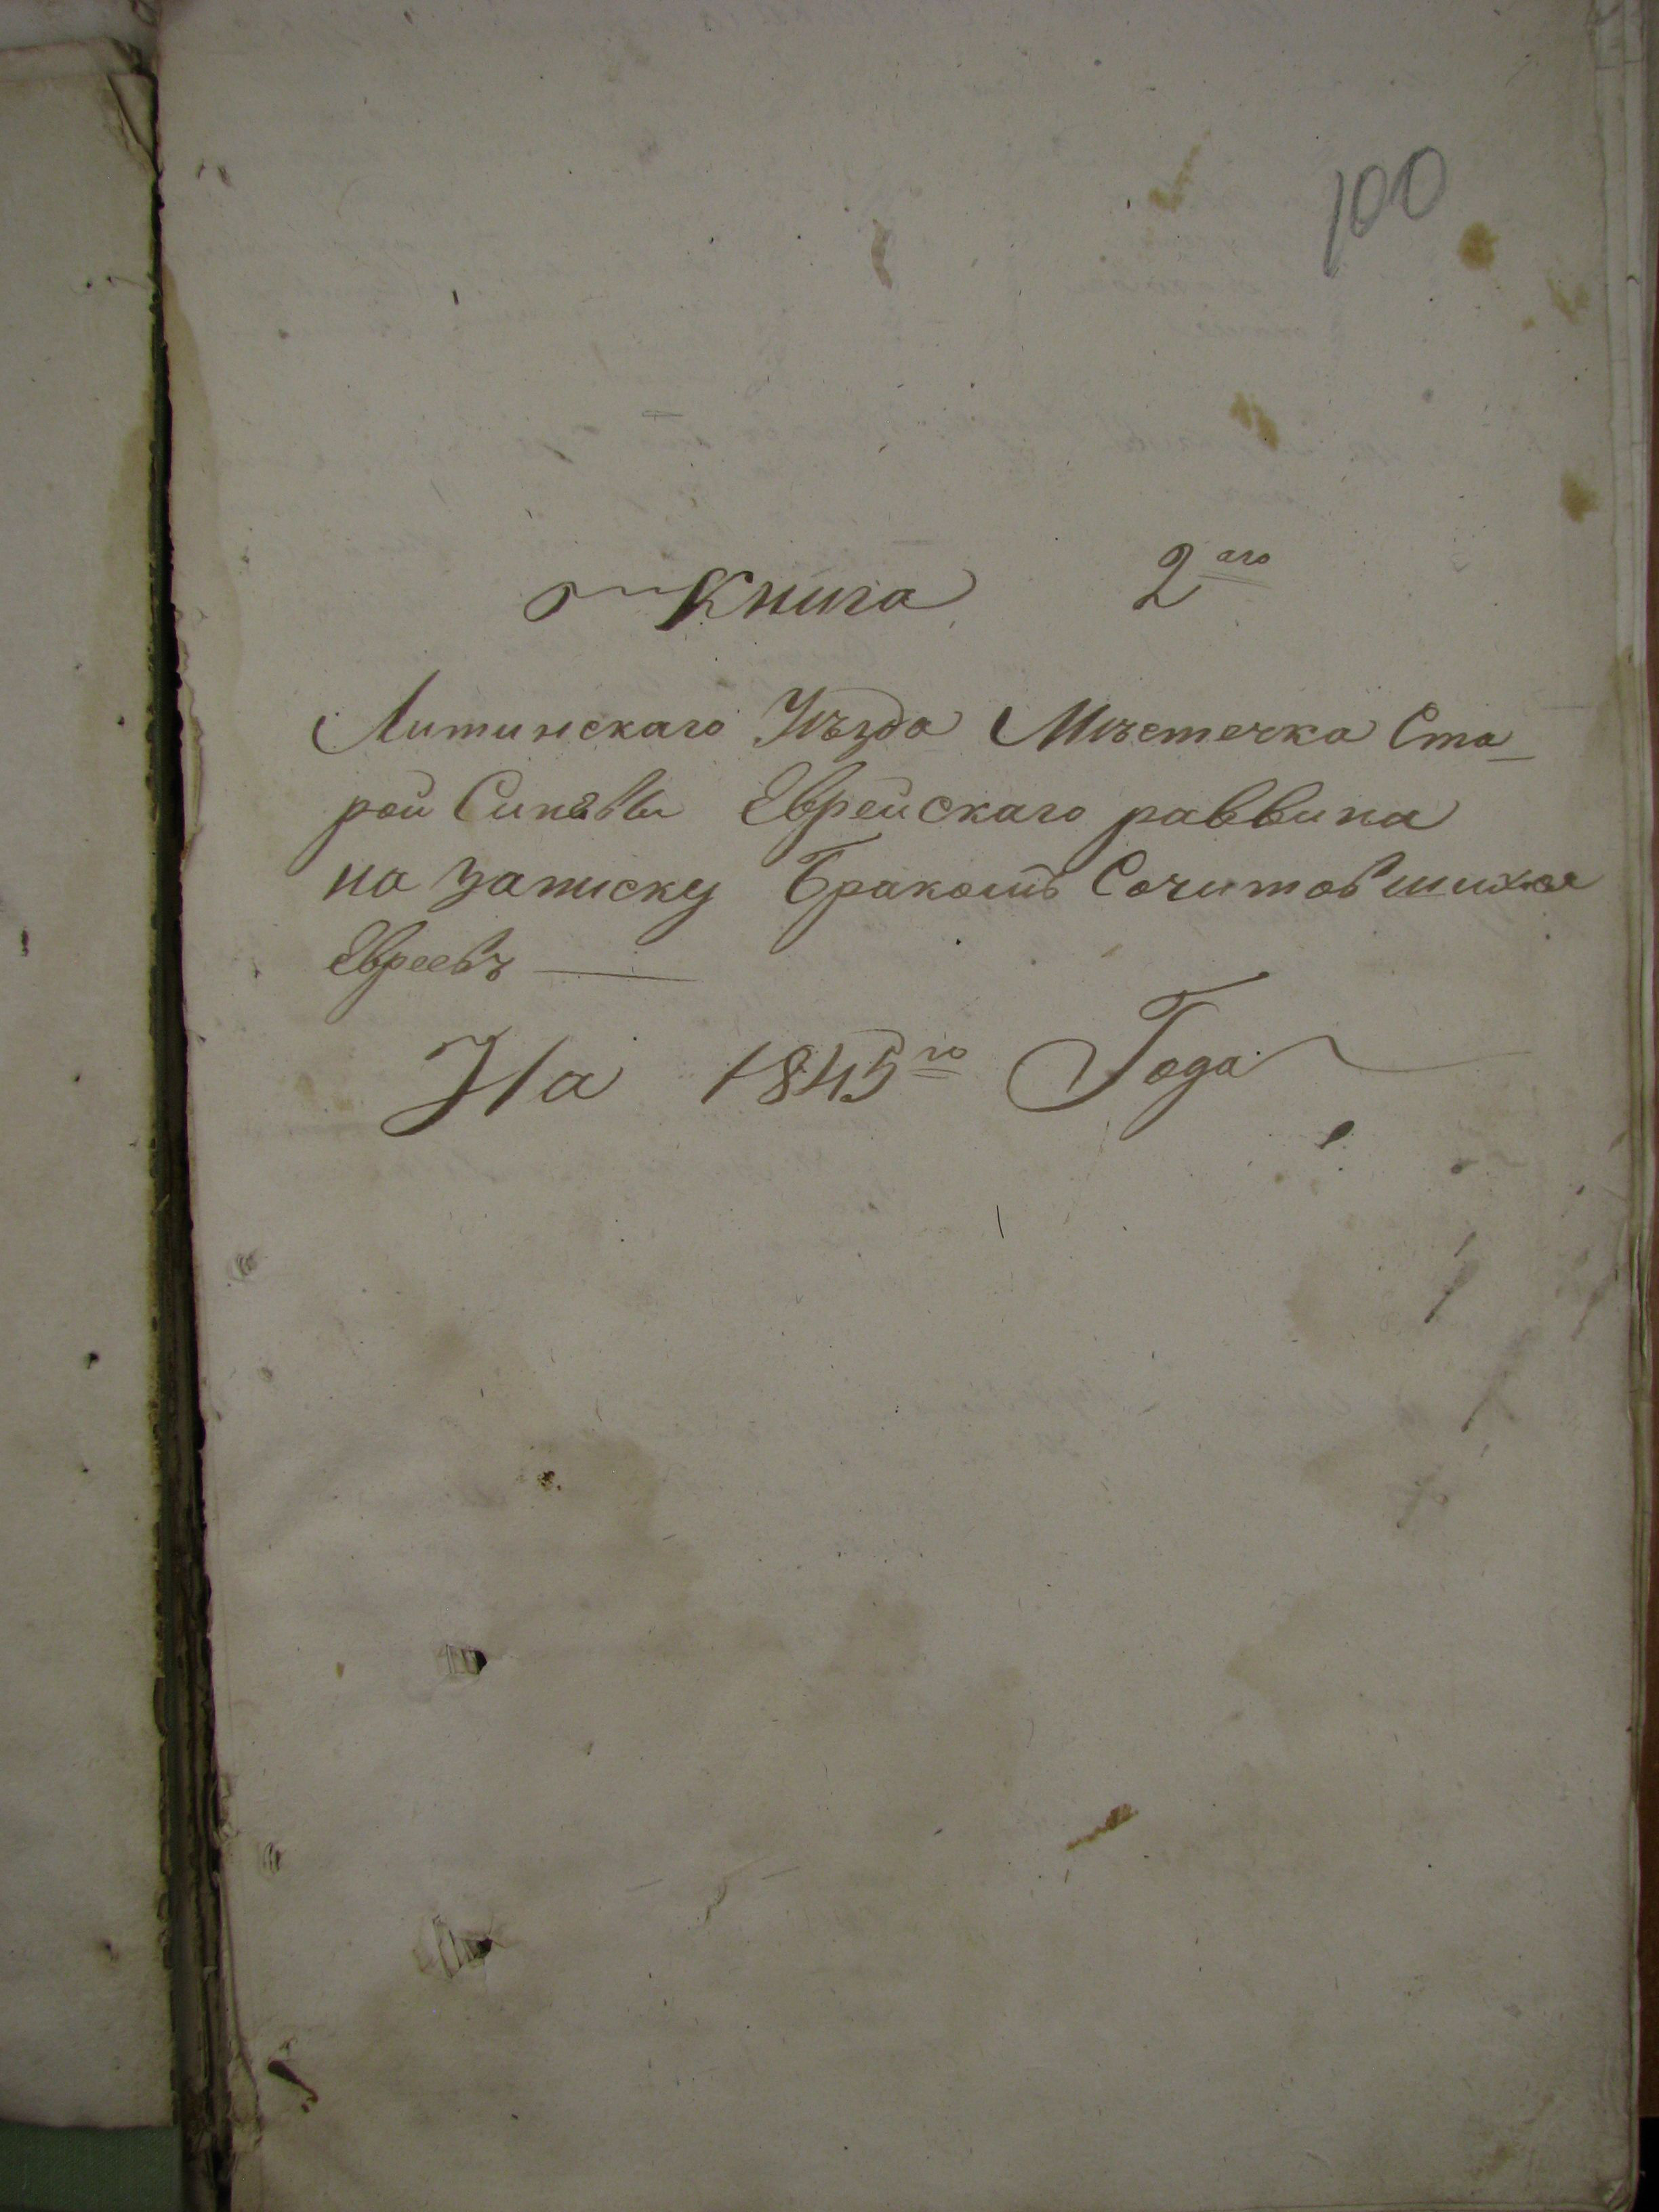 100
Книга 2аго
Литинскаго Уѣзда Мѣстечка Ста_
рой Синявы Еврейскаго раввина
на записку Бракомъ Сочитовшихся
Евреевъ
На 1845го Года